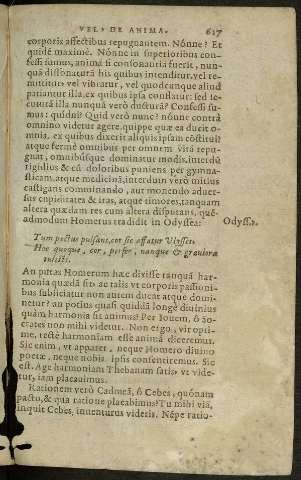 VEL, DE ANIMA. 617
corporis affectibus repugnantem. Nónne? Et
quidē maximè. Nónne in superioribus con-
fessi sumus, animā si consonantia fuerit, nun-
quā dissonaturā his quibus intenditur, vel re-
mittitur, vel vibratur, vel quodcunque aliud
patiuntur illa, ex quibus ipsa constatur: sed se-
cuturā illa nunquā verò ducturā? Confessi su-
mus: quidni? Quid verò nunc? nónne contrà
omnino videtur agere, quippe quæ ea ducit o-
mnia, ex quibus dixerit aliquis ipsam cōstitui?
atque fermè omnibus per omnem vitā repu-
gnat, omnibusque dominatur modis, interdū
rigidius & cū doloribus puniens per gymna-
sticam, atque medicinā, interdum verò mitius
castigans comminando, aut monendo aduer-
sus cupiditates & iras, atque timores, tanquam
altera quædam res cum altera disputans, quē-
admodum Homerus tradidit in Odyssea:
Odyss.
Tum pectus pulsans, cor sic affatur Vlysses:
Hoc quoque, cor, perfer, nanque & grauiora
tulisti.
An putas Homerum hæc dixisse tanquā har-
monia quædā sit: ac talis vt corporis passioni-
bus subiiciatur non autem ducat atque domi-
netur? an potius quasi quiddā longè diuinius
quàm harmonia sit animus? Per Iouem, ô So-
crates non mihi videtur. Non ergo, vir opti-
me, rectè harmoniam esse animā diceremus.
Sic enim, vt apparet, neque Homero diuino
poetæ, neque nobis ipsis consentiremus. Sic
est. Age harmoniam Thebanam satis, vt vide-
tur, iam placauimus.
Rationem verò Cadmeā, ô Cebes, quónam
pacto, & qua ratione placabimus? Tu mihi viā,
inquit Cebes, inuenturus videris. Népe ratio-